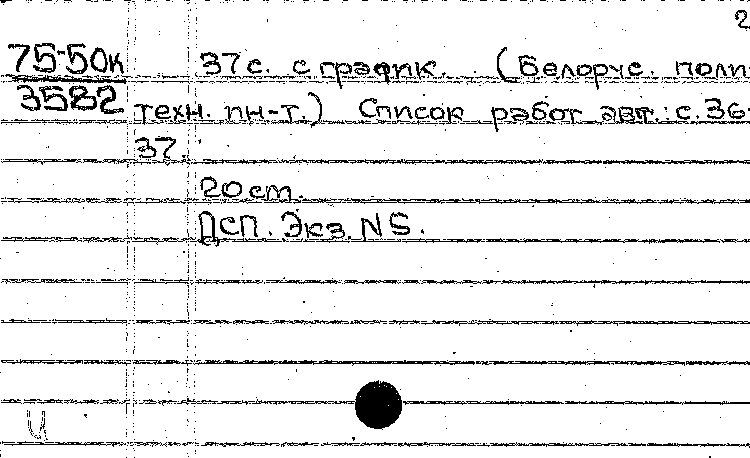 2
75-50к 37 с. с график. (Белорус. поли-
3582 техн. ин-т.) Список работ авт.: с. 36-
37.
20 ст.
ДСП. Экз. N5.
И